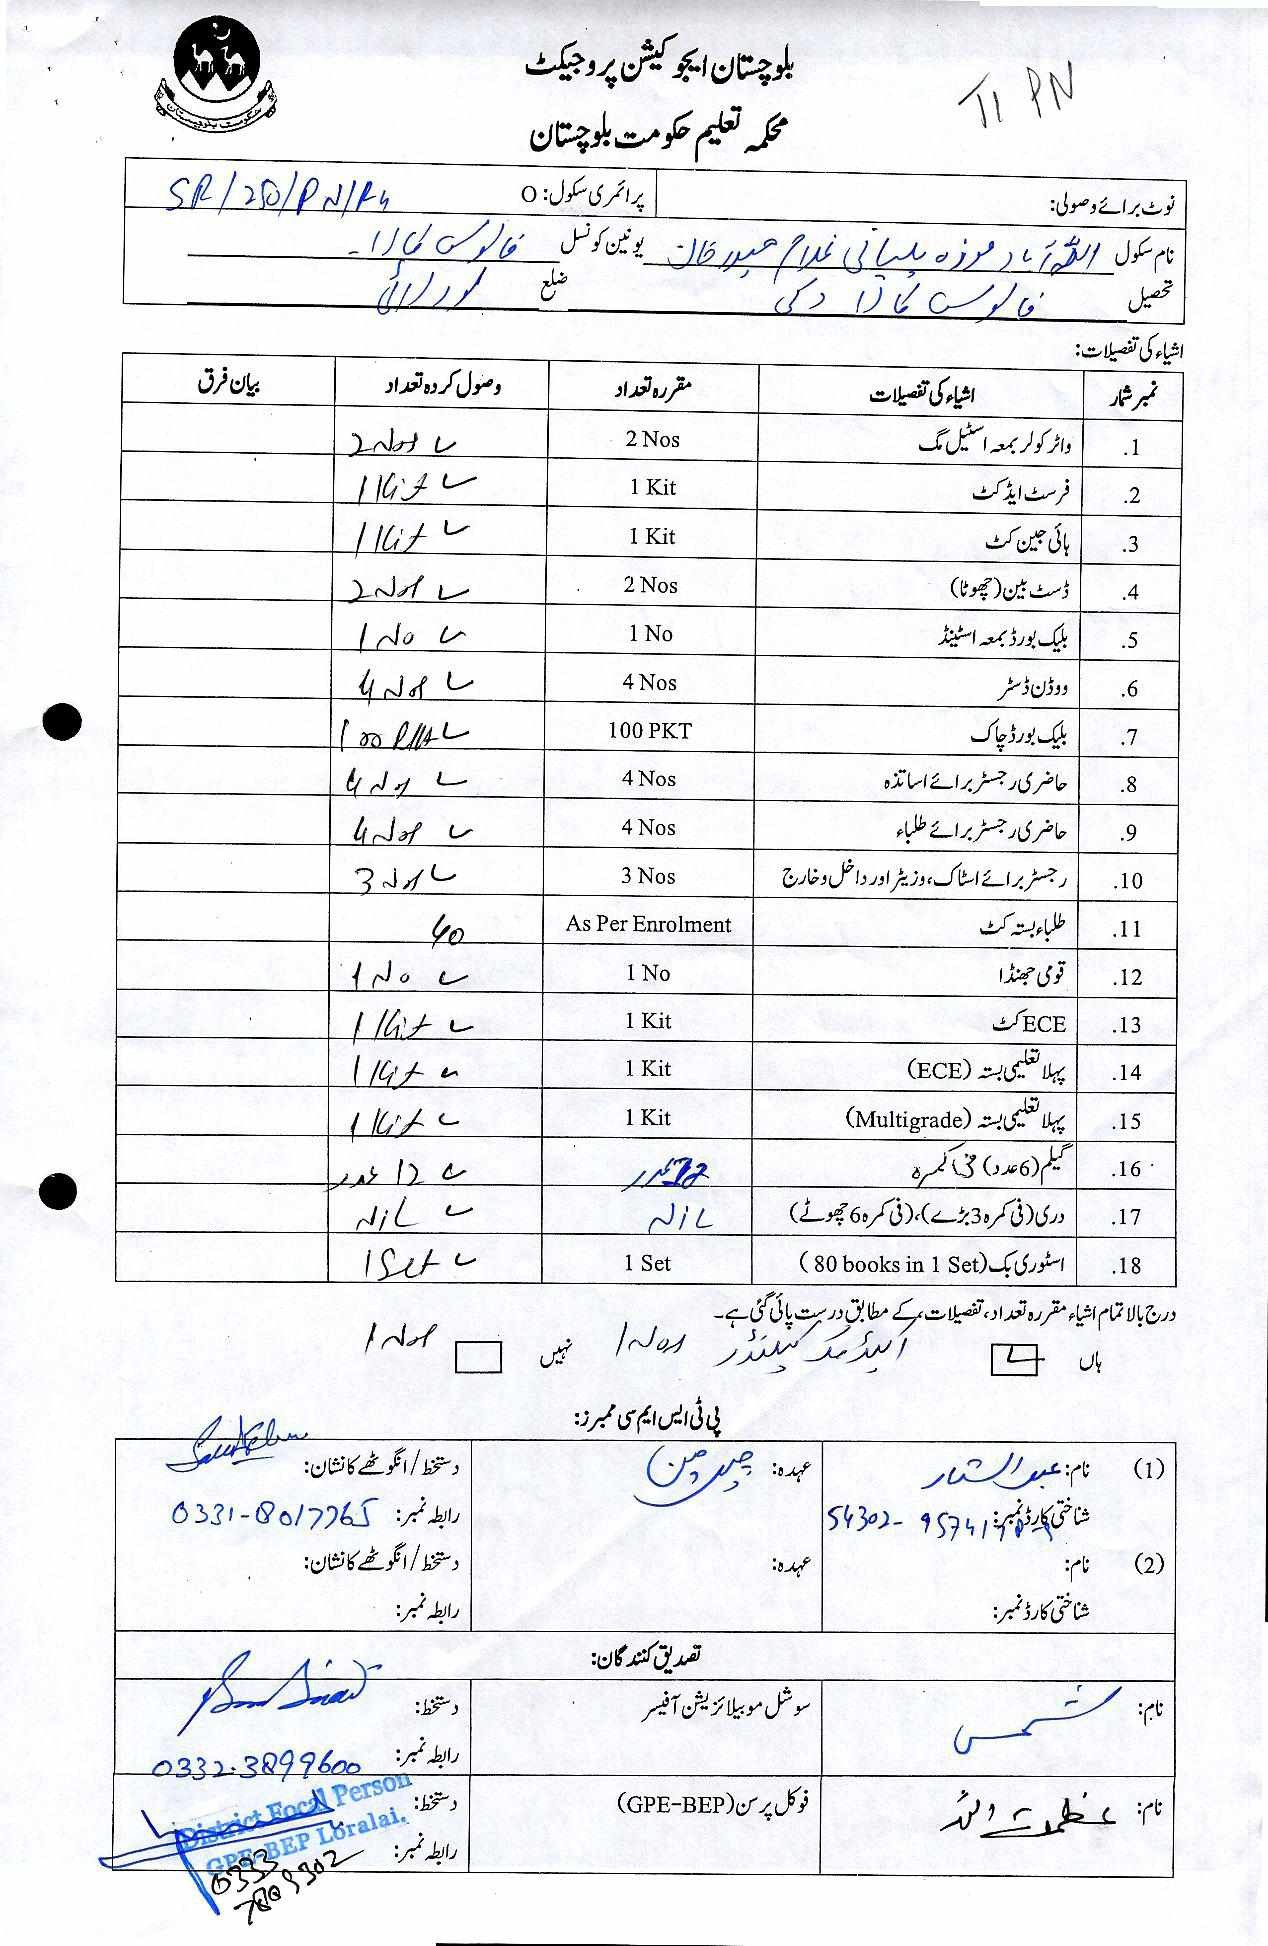 حکومت بلوچستان
بلوچستان ایجوکیشن پروجیکٹ
T1 PN
محکمہ تعلیم حکومت بلوچستان
نوٹ برائے وصولی: پرائمری سکول: O SR/250/PN/
نام سکول اللہ آباد پلیانی غلام حیدر خان یونین کونسل
تحصیل دکی ضلع لورلائی
اشیاء کی تفصیلات:
نمبر شمار اشیاء کی تفصیلات مقررہ تعداد وصول کردہ تعداد بیان فرق
1. واٹر کولر بمعہ اسٹیل مگ 2 Nos 2 Nos
2. فرسٹ ایڈ کٹ 1 Kit 1 Kit
3. ہائی جین کٹ 1 Kit 1 Kit
4. ڈسٹ بین (چھوٹا) 2 Nos 2 Nos
5. بلیک بورڈ بمعہ اسٹینڈ 1 No 1 No
6. ووڈن ڈسٹر 4 Nos 4 Nos
7. بلیک بورڈ چاک 100 PKT 100
8. حاضری رجسٹر برائے اساتذہ 4 Nos 4 Nos
9. حاضری رجسٹر برائے طلباء 4 Nos 4 Nos
10. رجسٹر برائے اسٹاک، وزیٹر اور داخل و خارج 3 Nos 3 Nos
11. طلباء بستہ کٹ As Per Enrolment 40
12. قومی جھنڈا 1 No 1 No
13. ECE کٹ 1 Kit 1 Kit
14. پہلا تعلیمی بستہ (ECE) 1 Kit 1 Kit
15. پہلا تعلیمی بستہ (Multigrade) 1 Kit 1 Kit
16. گیلم (6 عدد) فی کمرہ 12 عدد
17. دری (فی کمرہ 3 بڑے)، (فی کمرہ 6 چھوٹے) NIL NIL
18. اسٹوری بک (80 books in 1 Set) 1 Set 1 Set
درج بالا تمام اشیاء مقررہ تعداد، تفصیلات کے مطابق درست پائی گئی ہے۔
ہاں کیلنڈر 1 Nos نہیں 1 Nos
پی ٹی ایس ایم سی ممبرز:
(1) نام: عبدالستار عہدہ: چیئرمین دستخط/انگوٹھے کا نشان:
شناختی کارڈ نمبر: 54302- رابطہ نمبر: 0331-8017765
(2) نام: عہدہ: دستخط/انگوٹھے کا نشان:
شناختی کارڈ نمبر: رابطہ نمبر:
تصدیق کنندگان:
نام: شمس سوشل موبیلائزیشن آفیسر دستخط:
رابطہ نمبر: 0332-3899600
نام: عظمت اللہ فوکل پرسن (GPE-BEP) دستخط:
رابطہ نمبر: 0333
District Focal Person
GPE-BEP Loralai.